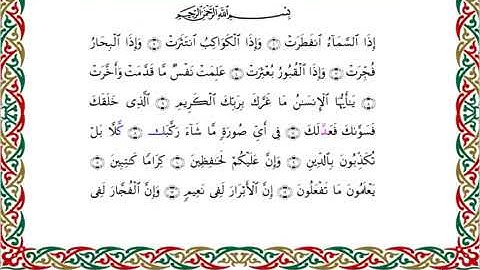 بِسْمِ ٱللَّهِ ٱلرَّحْمَٰنِ ٱلرَّحِيمِ
إِذَا ٱلسَّمَآءُ ٱنفَطَرَتْ ۝ وَإِذَا ٱلْكَوَاكِبُ ٱنتَثَرَتْ ۝ وَإِذَا ٱلْبِحَارُ
فُجِّرَتْ ۝ وَإِذَا ٱلْقُبُورُ بُعْثِرَتْ ۝ عَلِمَتْ نَفْسٌ مَّا قَدَّمَتْ وَأَخَّرَتْ
۝ يَٰٓأَيُّهَا ٱلْإِنسَٰنُ مَا غَرَّكَ بِرَبِّكَ ٱلْكَرِيمِ ۝ ٱلَّذِى خَلَقَكَ
فَسَوَّىٰكَ فَعَدَلَكَ ۝ فِىٓ أَىِّ صُورَةٍ مَّا شَآءَ رَكَّبَكَ ۝ كَلَّا بَلْ
تُكَذِّبُونَ بِٱلدِّينِ ۝ وَإِنَّ عَلَيْكُمْ لَحَٰفِظِينَ ۝ كِرَامًا كَٰتِبِينَ ۝
يَعْلَمُونَ مَا تَفْعَلُونَ ۝ إِنَّ ٱلْأَبْرَارَ لَفِى نَعِيمٍ ۝ وَإِنَّ ٱلْفُجَّارَ لَفِى